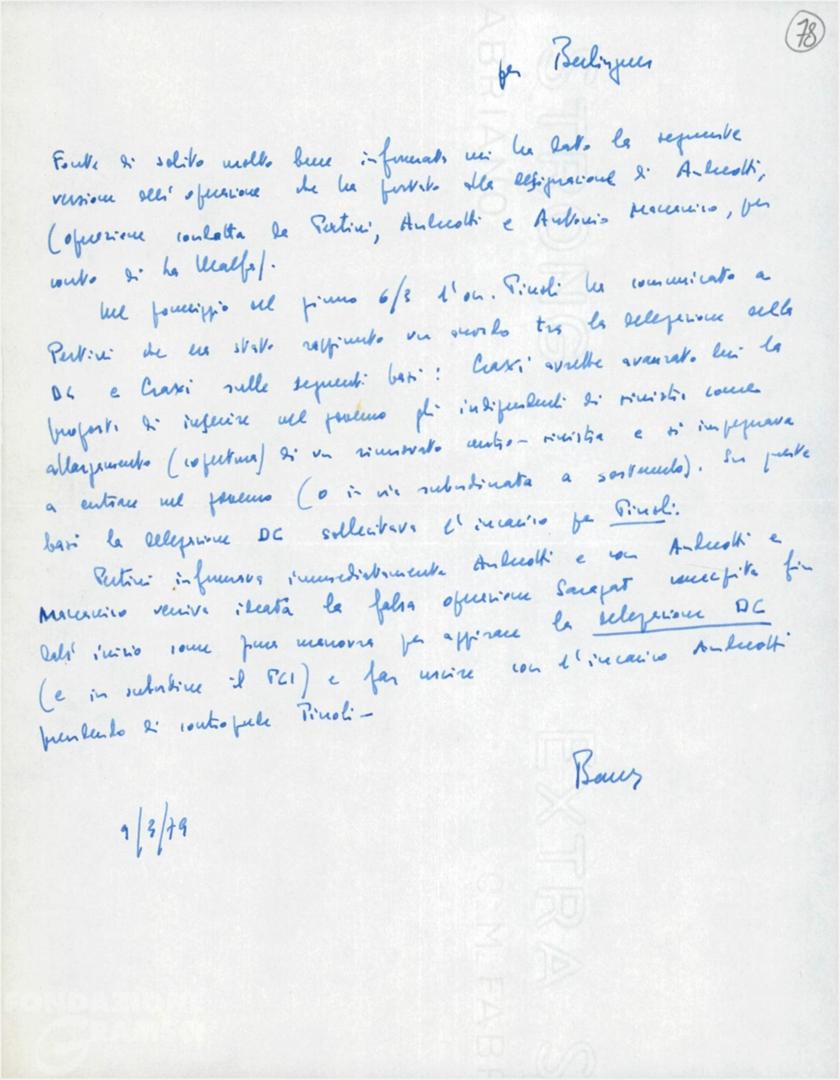 78
per Berlinguer
Fonte di solito molto bene informata mi ha dato la seguente
versione dell'operazione che ha portato alla designazione di Andreotti,
(operazione condotta da Pertini, Andreotti e Antonio Maccanico, per
conto di La Malfa).
Nel pomeriggio del giorno 6/3 l'on. Piccoli ha comunicato a
Pertini che era stato raggiunto un accordo tra la delegazione della
DC e Craxi sulle seguenti basi: Craxi avrebbe avanzato lui la
proposta di inserire nel governo gli indipendenti di sinistra come
allargamento (copertura) di un rinnovato centro-sinistra e si impegnava
a entrare nel governo (o in via subordinata a sostenerlo). Su queste
basi la delegazione DC sollecitava l'incarico per Piccoli.
Pertini informava immediatamente Andreotti e con Andreotti e
Maccanico veniva ideata la falsa operazione Saragat concepita fin
dall'inizio come pura manovra per aggirare la delegazione DC
(e in subordine il PCI) e far uscire con l'incarico Andreotti
prendendo di contropiede Piccoli –
9/3/79
STRONG
EXTRA S
FABRIANO
G.M. FABR
FONDAZIONE
GRAMSCI